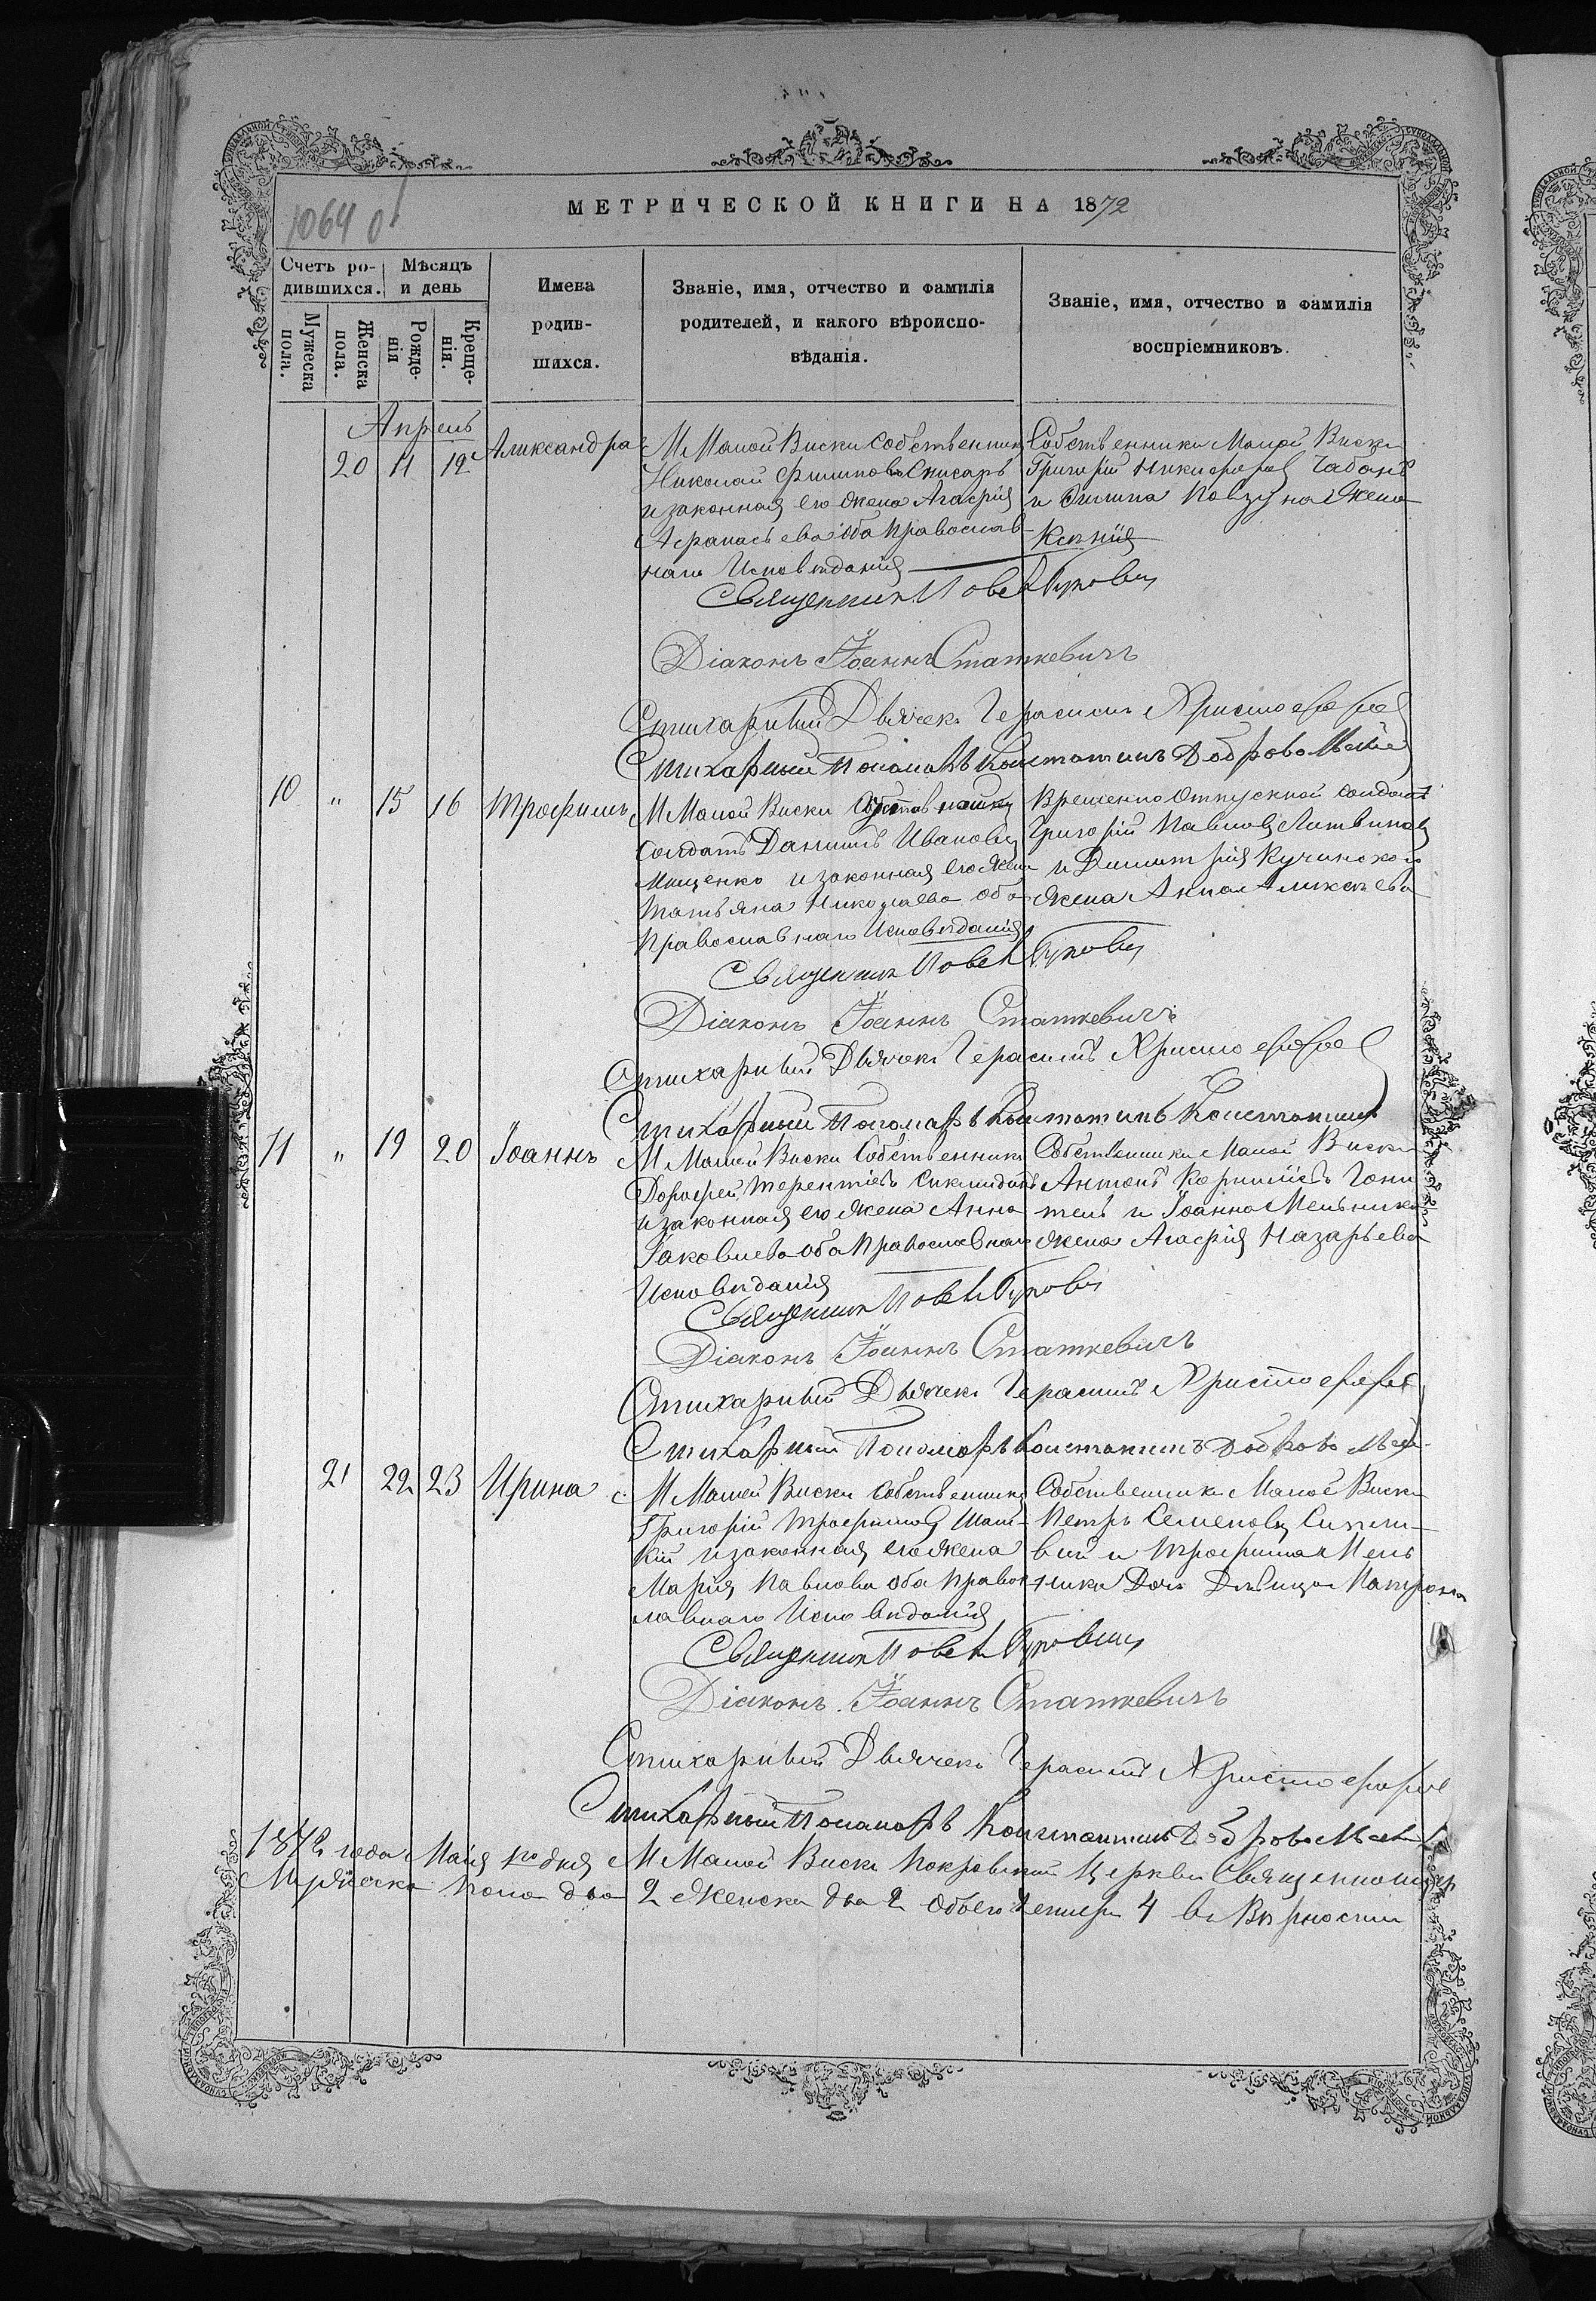 МЕТРИЧЕСКОЙ КНИГИ НА 1872
1064 об
Счетъ ро-
дившихся.
Мѣсяцъ
и день
Мужеска
пола.
Женска
пола.
Рожде-
нія
Креще-
нія.
Имена
родив-
шихся.
Званіе, имя, отчество и фамилія
родителей, и какого вѣроиспо-
вѣданія.
Званіе, имя, отчество и фамилія
воспріемниковъ.
Апрель
20 11 12 Александра
М Малой Виски собственникъ
Николай Филиповъ
и законная его жена Агафія
Афанасьева оба православ-
наго Исповѣданія
Собственники Малой Виски
Григорій Никифоровъ Чабанъ
и Филипа жена
Ксенія
Священникъ
Діаконъ Іоаннъ Статкевичъ
Стихарный Дьячекъ Герасимъ Христофоровъ
Стихарный Пономарь Константинъ Добровольскій
10 " 15 16 Трофимъ
М Малой Виски
солдатъ Даніилъ Ивановъ
Мищенко и законная его жена
Татьяна Николаева оба
Православнаго Исповѣданія
Временно Отпускной солдатъ
Григорій Павловъ Литвиновъ
и Димитрія Кучинскаго
жена Анна Алексѣева
Священникъ
Діаконъ Іоаннъ Статкевичъ
Стихарный Дьячекъ Герасимъ Христофоровъ
Стихарный Пономарь Константинъ
11 " 19 20 Іоаннъ
М Малой Виски Собственникъ
Дорофей Терентіевъ
и законная его жена Анна
Іаковлева оба Православнаго
Исповѣданія
Собственники Малой Виски
Антонъ Корниліевъ Гон
тель и Іоанна Мельника
жена Агафія Назарьева
Священникъ
Діаконъ Іоаннъ Статкевичъ
Стихарный Дьячекъ Герасимъ Христофоровъ
Стихарный Пономарь Константинъ Добровольск-
21 22 23 Ирина
М Малой Виски собственникъ
Григорій Трофимовъ
кій и законная его жена
Марія Павлова оба Правос
лавнаго Исповѣданія
Собственники Малой Виски
Петръ Семеновъ
вый и Трофима Мель
ника Дочь Дѣвица
Священникъ
Діаконъ Іоаннъ Статкевичъ
Стихарный Дьячекъ Герасимъ Христофоровъ
Стихарный Пономарь Константинъ Добровольскій
1872 года Маія 1го дня М Малой Виски Покровской Церкви
Мужеска пола два 2 Женска два 2 Обоего 4 въ Вѣрности